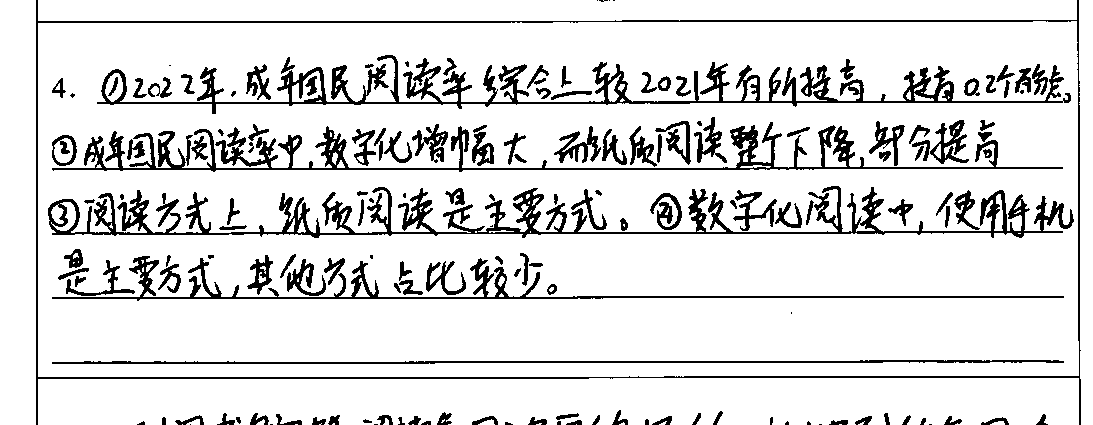 4. ①2022年,成年国民阅读率综合上较2021年有所提高,提高0.2个百分点。
②成年国民阅读率中,数字化增幅大,而纸质阅读整个下降,部分提高
③阅读方式上,纸质阅读是主要方式。④数字化阅读中,使用手机
是主要方式,其他方式占比较少。